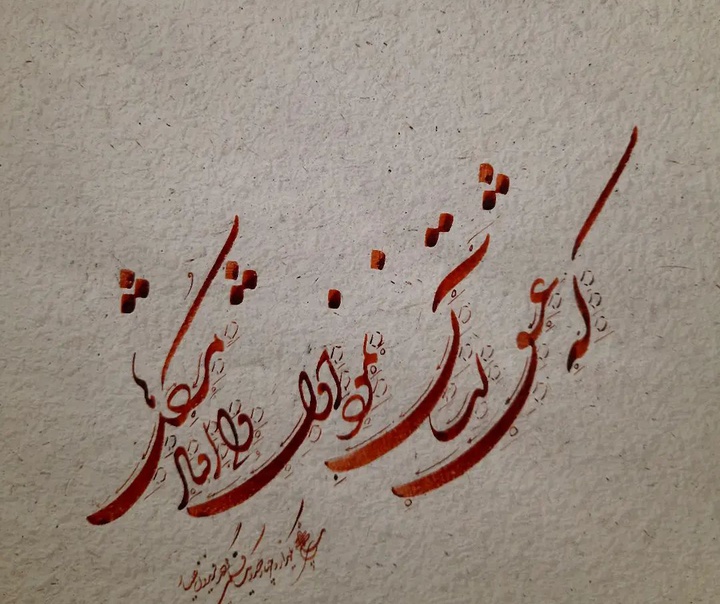 که عشق آسان نمود اول ولی افتاد مشکلها